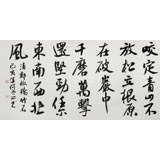 咬定青山不
放松立根原
在破巖中
千磨萬擊
還堅勁任
東南西北
風
清鄭板橋竹石